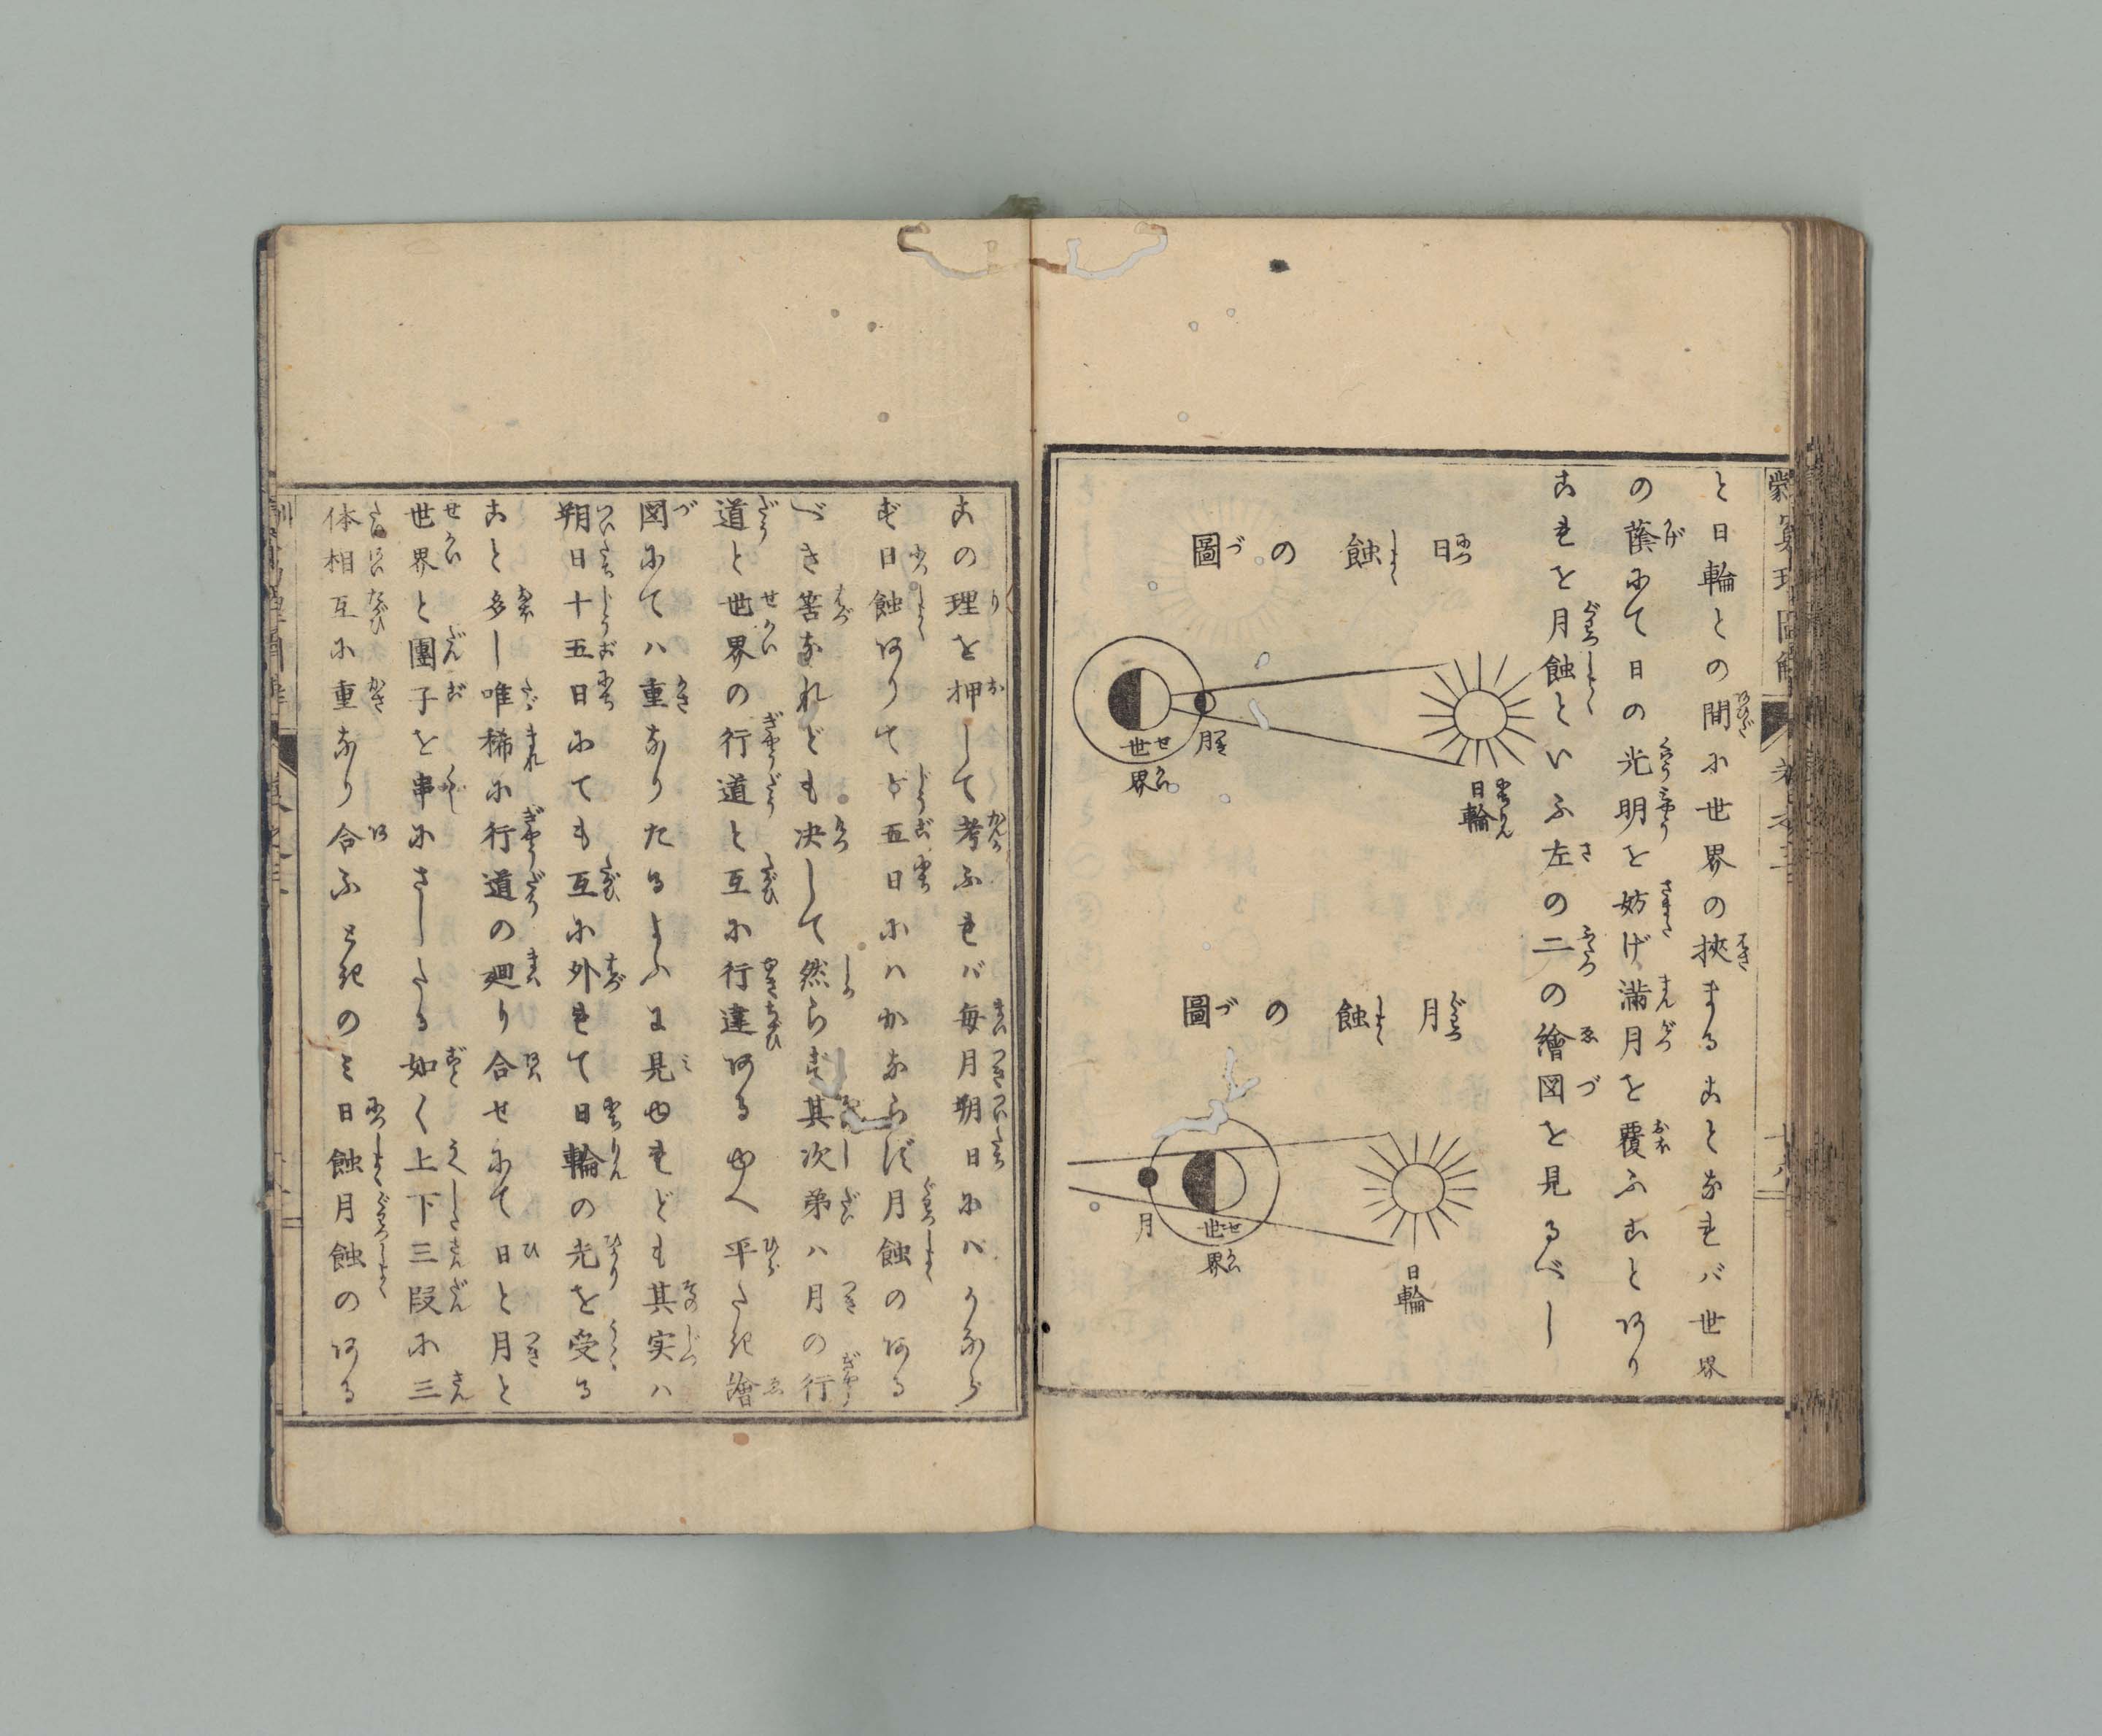 と日輪との間に世界の挾まることなれバ世界
の蔭にて日の光明を妨げ満月を覆ふことあり
これを月蝕といふ左の二の繪図を見るべし
日蝕の圖
日輪
月
世界
月蝕の圖
日輪
世界
月
この理を押して考ふれバ毎月朔日にハかなら
ず日蝕ありて十五日にハかならず月蝕のある
べき筈なれども决して然らず其次第ハ月の行
道と世界の行道と互に行違あるゆへ平たき繪
図にてハ重なりたるように見ゆれども其実ハ
朔日十五日にても互に外れて日輪の光を受る
こと多し唯稀に行道の廻り合せにて日と月と
世界と團子を串にさしたる如く上下三段に三
体相互に重なり合ふときのミ日蝕月蝕のある